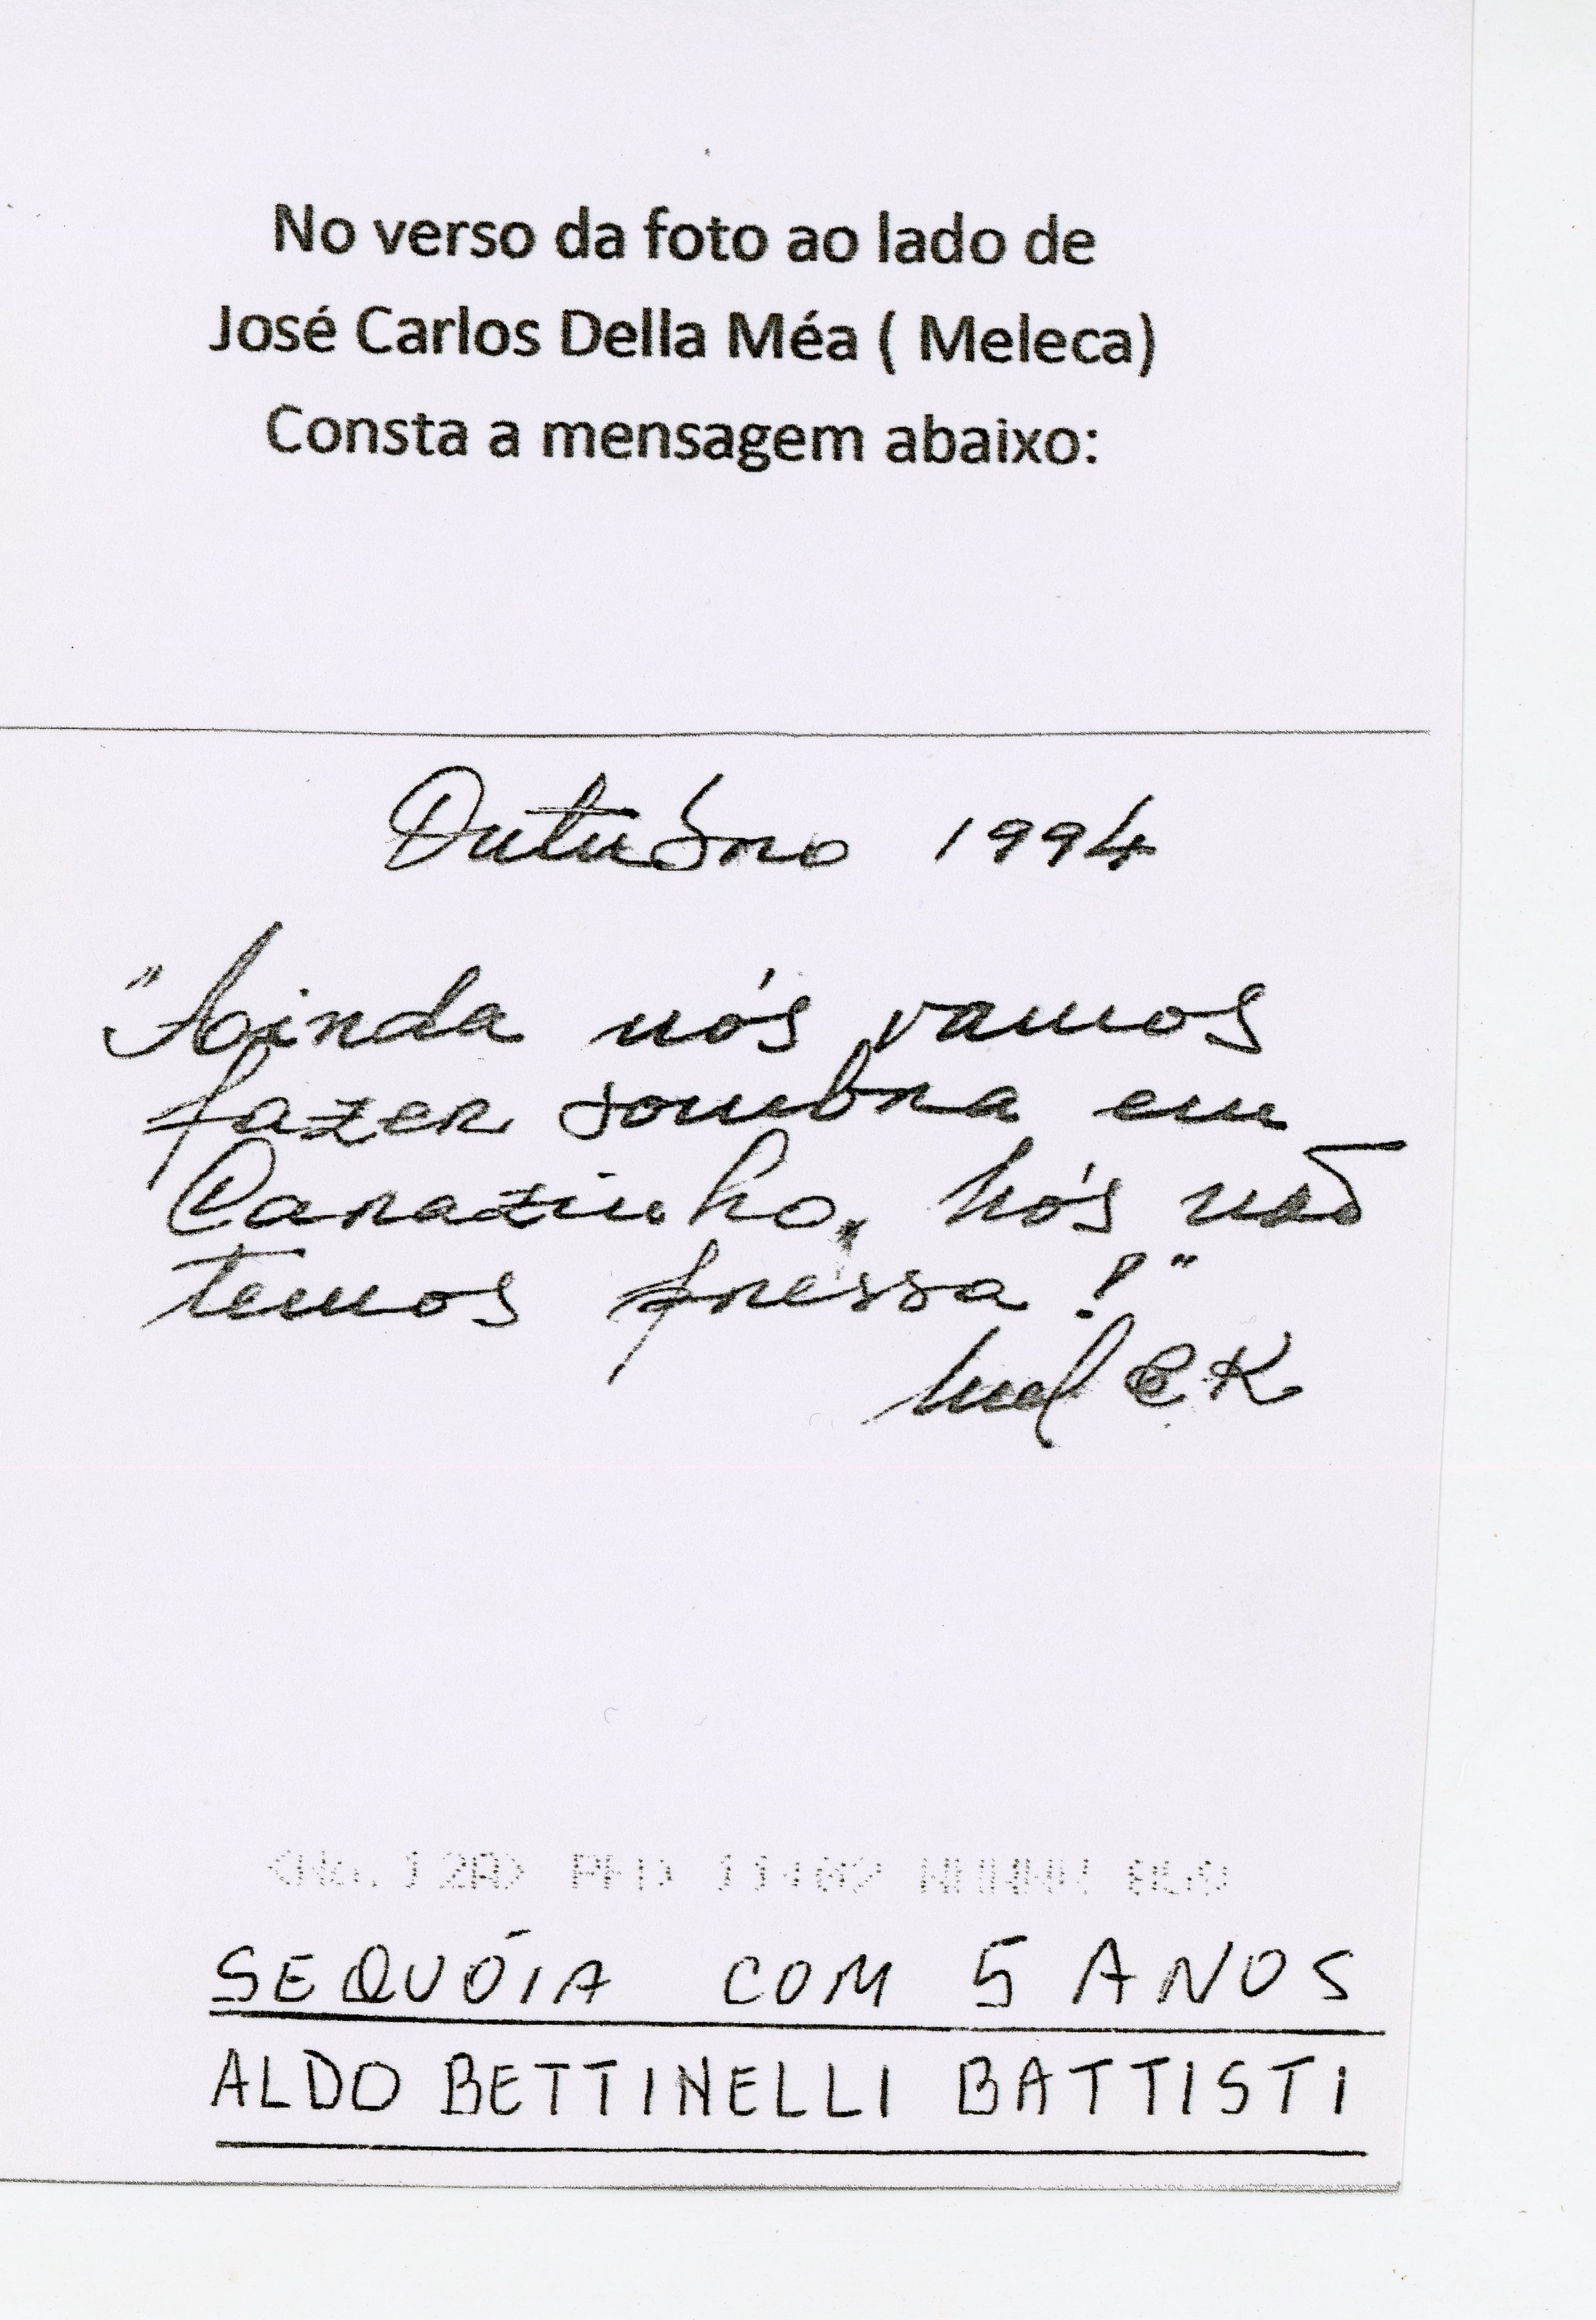 No verso da foto ao lado de
José Carlos Della Méa ( Meleca)
Consta a mensagem abaixo:
Outubro 1994
"Ainda nós vamos
fazer sombra em
Carazinho, nós não
temos pressa!"
SEQUÓIA COM 5 ANOS
ALDO BETTINELLI BATTISTI